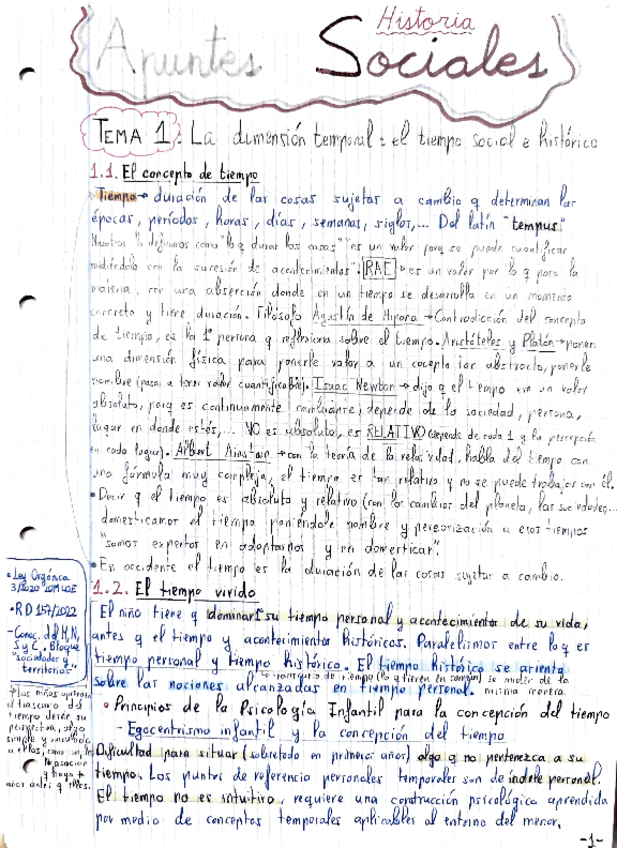 Historia
Apuntes Sociales
TEMA 1: La dimensión temporal: el tiempo social e histórico
1.1. El concepto de tiempo
Tiempo → duración de las cosas sujetas a cambio q determinan las
épocas, períodos, horas, días, semanas, siglos,... Del latín "tempus"
Nosotros lo definimos como "lo q duran las cosas" "es un valor porq se puede cuantificar
midiéndolo con la sucesión de acontecimientos". RAE → es un valor por lo q pasa la
materia, con una aserción donde en un tiempo se desarrolla en un momento
concreto y tiene duración. Filósofo Agustín de Hipona → Contradicción del concepto
de tiempo, es la 1ª persona q reflexiona sobre el tiempo. Aristóteles y Platón → ponen
una dimensión física para ponerle valor a un cocepto tan abstracto, ponerle
nombre (pasa a tener valor cuantificable). Isaac Newton → dijo q el tiempo era un valor
absoluto, porq es continuamente cambiante; depende de la sociedad, persona,
lugar en donde estés,... NO es absoluto, es RELATIVO (depende de cada 1 y la percepción
en cada lugar). Albert Ainstain → con la teoría de la relatividad, habla del tiempo con
una fórmula muy compleja, el tiempo es tan relativo y no se puede trabajar con él.
• Decir q el tiempo es absoluto y relativo (con los cambios del planeta, las sociedades...
domesticamos el tiempo poniéndole nombre y
"somos expertos en adaptarnos y en domesticar".
• En occidente el tiempo es la duración de las cosas sujetas a cambio.
1.2. El tiempo vivido
El niño tiene q dominar su tiempo personal y acontecimientos de su vida,
antes q el tiempo y acontecimientos históricos. Paralelismos entre lo q es
tiempo personal y tiempo histórico. El tiempo histórico se asienta
→ transcurso de tiempo (lo q tienen en común) se miden de la
misma manera
sobre las nociones alcanzadas en tiempo personal.
• Principios de la Psicología Infantil para la concepción del tiempo
- Egocentrismo infantil y la concepción del tiempo
Dificultad para situar (sobretodo en primeros años) algo q no pertenezca a su
tiempo. Los puntos de referencia personales temporales son de índole personal.
El tiempo no es intuitivo, requiere una construcción psicológica aprendida
por medio de conceptos temporales aplicables al entorno del menor.
• Ley Orgánica
3/2020 LOMLOE
• RD 157/2022
- Conoc. del M.N,
S y C. Bloque
"sociedades y
territorios"
• Los niños aprecian
el trascurso del
tiempo desde su
perspectiva, algo
simple y vinculado
a ellos, como si
no pasaron
y haya
años antes q ellos.
-1-